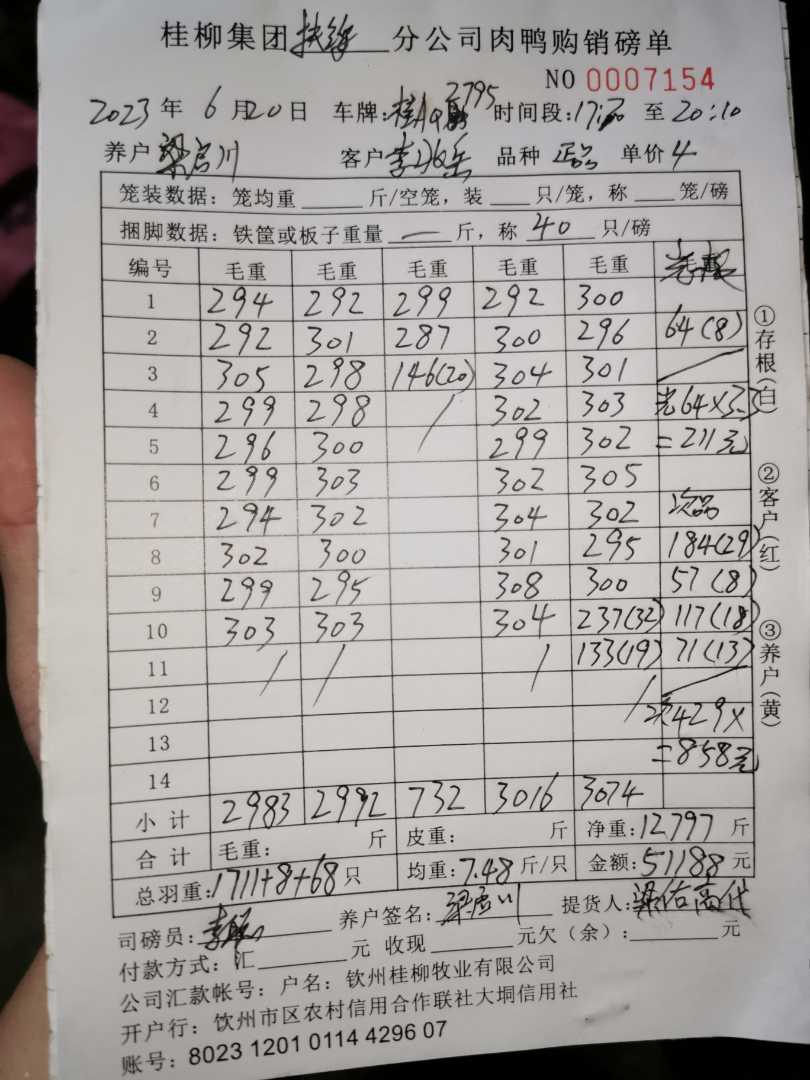 桂柳集团扶绥分公司肉鸭购销磅单
NO 0007154
2023年6月20日 车牌:桂A 2795 时间段:17:00至20:10
养户 客户 品种 正品 单价 4
笼装数据: 笼均重 斤/空笼, 装 只/笼, 称 笼/磅
捆脚数据: 铁筐或板子重量 — 斤, 称 40 只/磅
编号 毛重 毛重 毛重 毛重 毛重
1 294 292 299 292 300
2 292 301 287 300 296 64(8)
3 305 298 146(20) 304 301
4 299 298 / 302 303 64×3.3
5 296 300 299 302 =211元
6 299 303 302 305
7 294 302 304 302 次品
8 302 300 301 295 184(29)
9 299 295 308 300 57(8)
10 303 303 304 237(32) 117(18)
11 / / / 133(19) 71(13)
12 / 次429×
13 =858元
14
小计 2983 2992 732 3016 3074
合计 毛重: 斤 皮重: 斤 净重:12797斤
总羽重:1711+8+68只 均重:7.48斤/只 金额:51188元
司磅员: 养户签名: 提货人:
付款方式: 汇 元 收现 元欠(余): 元
公司汇款帐号: 户名: 钦州桂柳牧业有限公司
开户行: 饮州市区农村信用合作联社大垌信用社
账号: 8023 1201 0114 4296 07
①存根(白)
②客户(红)
③养户(黄)